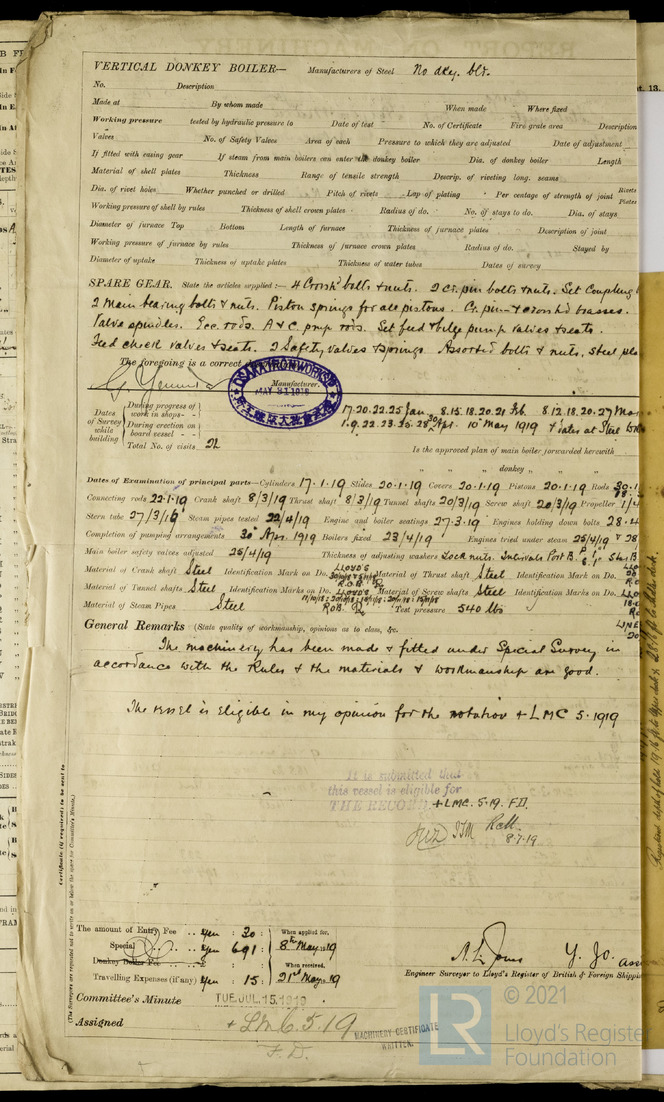 VERTICAL DONKEY BOILER— Manufacturers of Steel No dky. blr.
No. Description
Made at By whom made When made Where fixed
Working pressure tested by hydraulic pressure to Date of test No. of Certificate Fire grate area Description
Valves No. of Safety Valves Area of each Pressure to which they are adjusted Date of adjustment
If fitted with easing gear If steam from main boilers can enter the donkey boiler Dia. of donkey boiler Length
Material of shell plates Thickness Range of tensile strength Descrip. of riveting long. seams
Dia. of rivet holes Whether punched or drilled Pitch of rivets Lap of plating Per centage of strength of joint Rivets Plates
Working pressure of shell by rules Thickness of shell crown plates Radius of do. No. of stays to do. Dia. of stays
Diameter of furnace Top Bottom Length of furnace Thickness of furnace plates Description of joint
Working pressure of furnace by rules Thickness of furnace crown plates Radius of do. Stayed by
Diameter of uptake Thickness of uptake plates Thickness of water tubes Dates of survey
SPARE GEAR. State the articles supplied:— 4 Crossh'd bolts & nuts. 2 Cr. pin bolts & nuts. Set Coupling
2 Main bearing bolts & nuts. Piston springs for all pistons. Cr. pin & crossh'd brasses.
Valve spindles. Ecc. rods. A & C. pump rods. Set feed & bilge pump valves & seats.
Feed check valves & seats. 2 Safety valves & springs Assorted bolts & nuts, Steel
The foregoing is a correct
Manufacturer.
OSAKA IRON WORKS
MAY 31 1919
Dates of Survey while building
During progress of work in shops - - 17. 20. 22. 25 Jan 8. 15. 18. 20. 21 Feb. 8. 12. 18. 20. 27 Mar
During erection on board vessel - - - 1. 9. 22. 23. 25. 28 Apr. 10 May 1919
Total No. of visits 22
Is the approved plan of main boiler forwarded herewith
" " " donkey " "
Dates of Examination of principal parts—Cylinders 17-1-19 Slides 20-1-19 Covers 20-1-19 Pistons 20-1-19 Rods
Connecting rods 22-1-19 Crank shaft 8/3/19 Thrust shaft 8/3/19 Tunnel shafts 20/3/19 Screw shaft 20/3/19 Propeller
Stern tube 27/3/19 Steam pipes tested 22/4/19 Engine and boiler seatings 27-3-19 Engines holding down bolts
Completion of pumping arrangements 30 Apr. 1919 Boilers fixed 23/4/19 Engines tried under steam 25/4/19 & 28
Main boiler safety valves adjusted 25/4/19 Thickness of adjusting washers Lock nuts.
Material of Crank shaft Steel Identification Mark on Do. LLOYD'S Material of Thrust shaft Steel Identification Mark on Do.
Material of Tunnel shafts Steel Identification Marks on Do. LLOYD'S Material of Screw shafts Steel Identification Marks on Do.
Material of Steam Pipes Steel Test pressure 540 lbs
General Remarks (State quality of workmanship, opinions as to class, &c.
The machinery has been made & fitted under Special Survey in
accordance with the Rules & the materials & workmanship are good.
The vessel is eligible in my opinion for the notation + LMC 5. 1919
It is submitted that
this vessel is eligible for
THE RECORD + LMC. 5.19. F.D.
8.7.19
Certificate (if required) to be sent to
The amount of Entry Fee .. Yen : 30 : When applied for,
Special .. .. Yen 691 : 8th May 19
Donkey Boiler Fee .. .. : : When received,
Travelling Expenses (if any) Yen : 15 : 21st May 19
Engineer Surveyor to Lloyd's Register of British & Foreign Shipping
Committee's Minute TUE. JUL. 15. 1919
Assigned + LMC. 5. 19
F.D.
MACHINERY CERTIFICATE
WRITTEN.
LR
© 2021
Lloyd's Register
Foundation